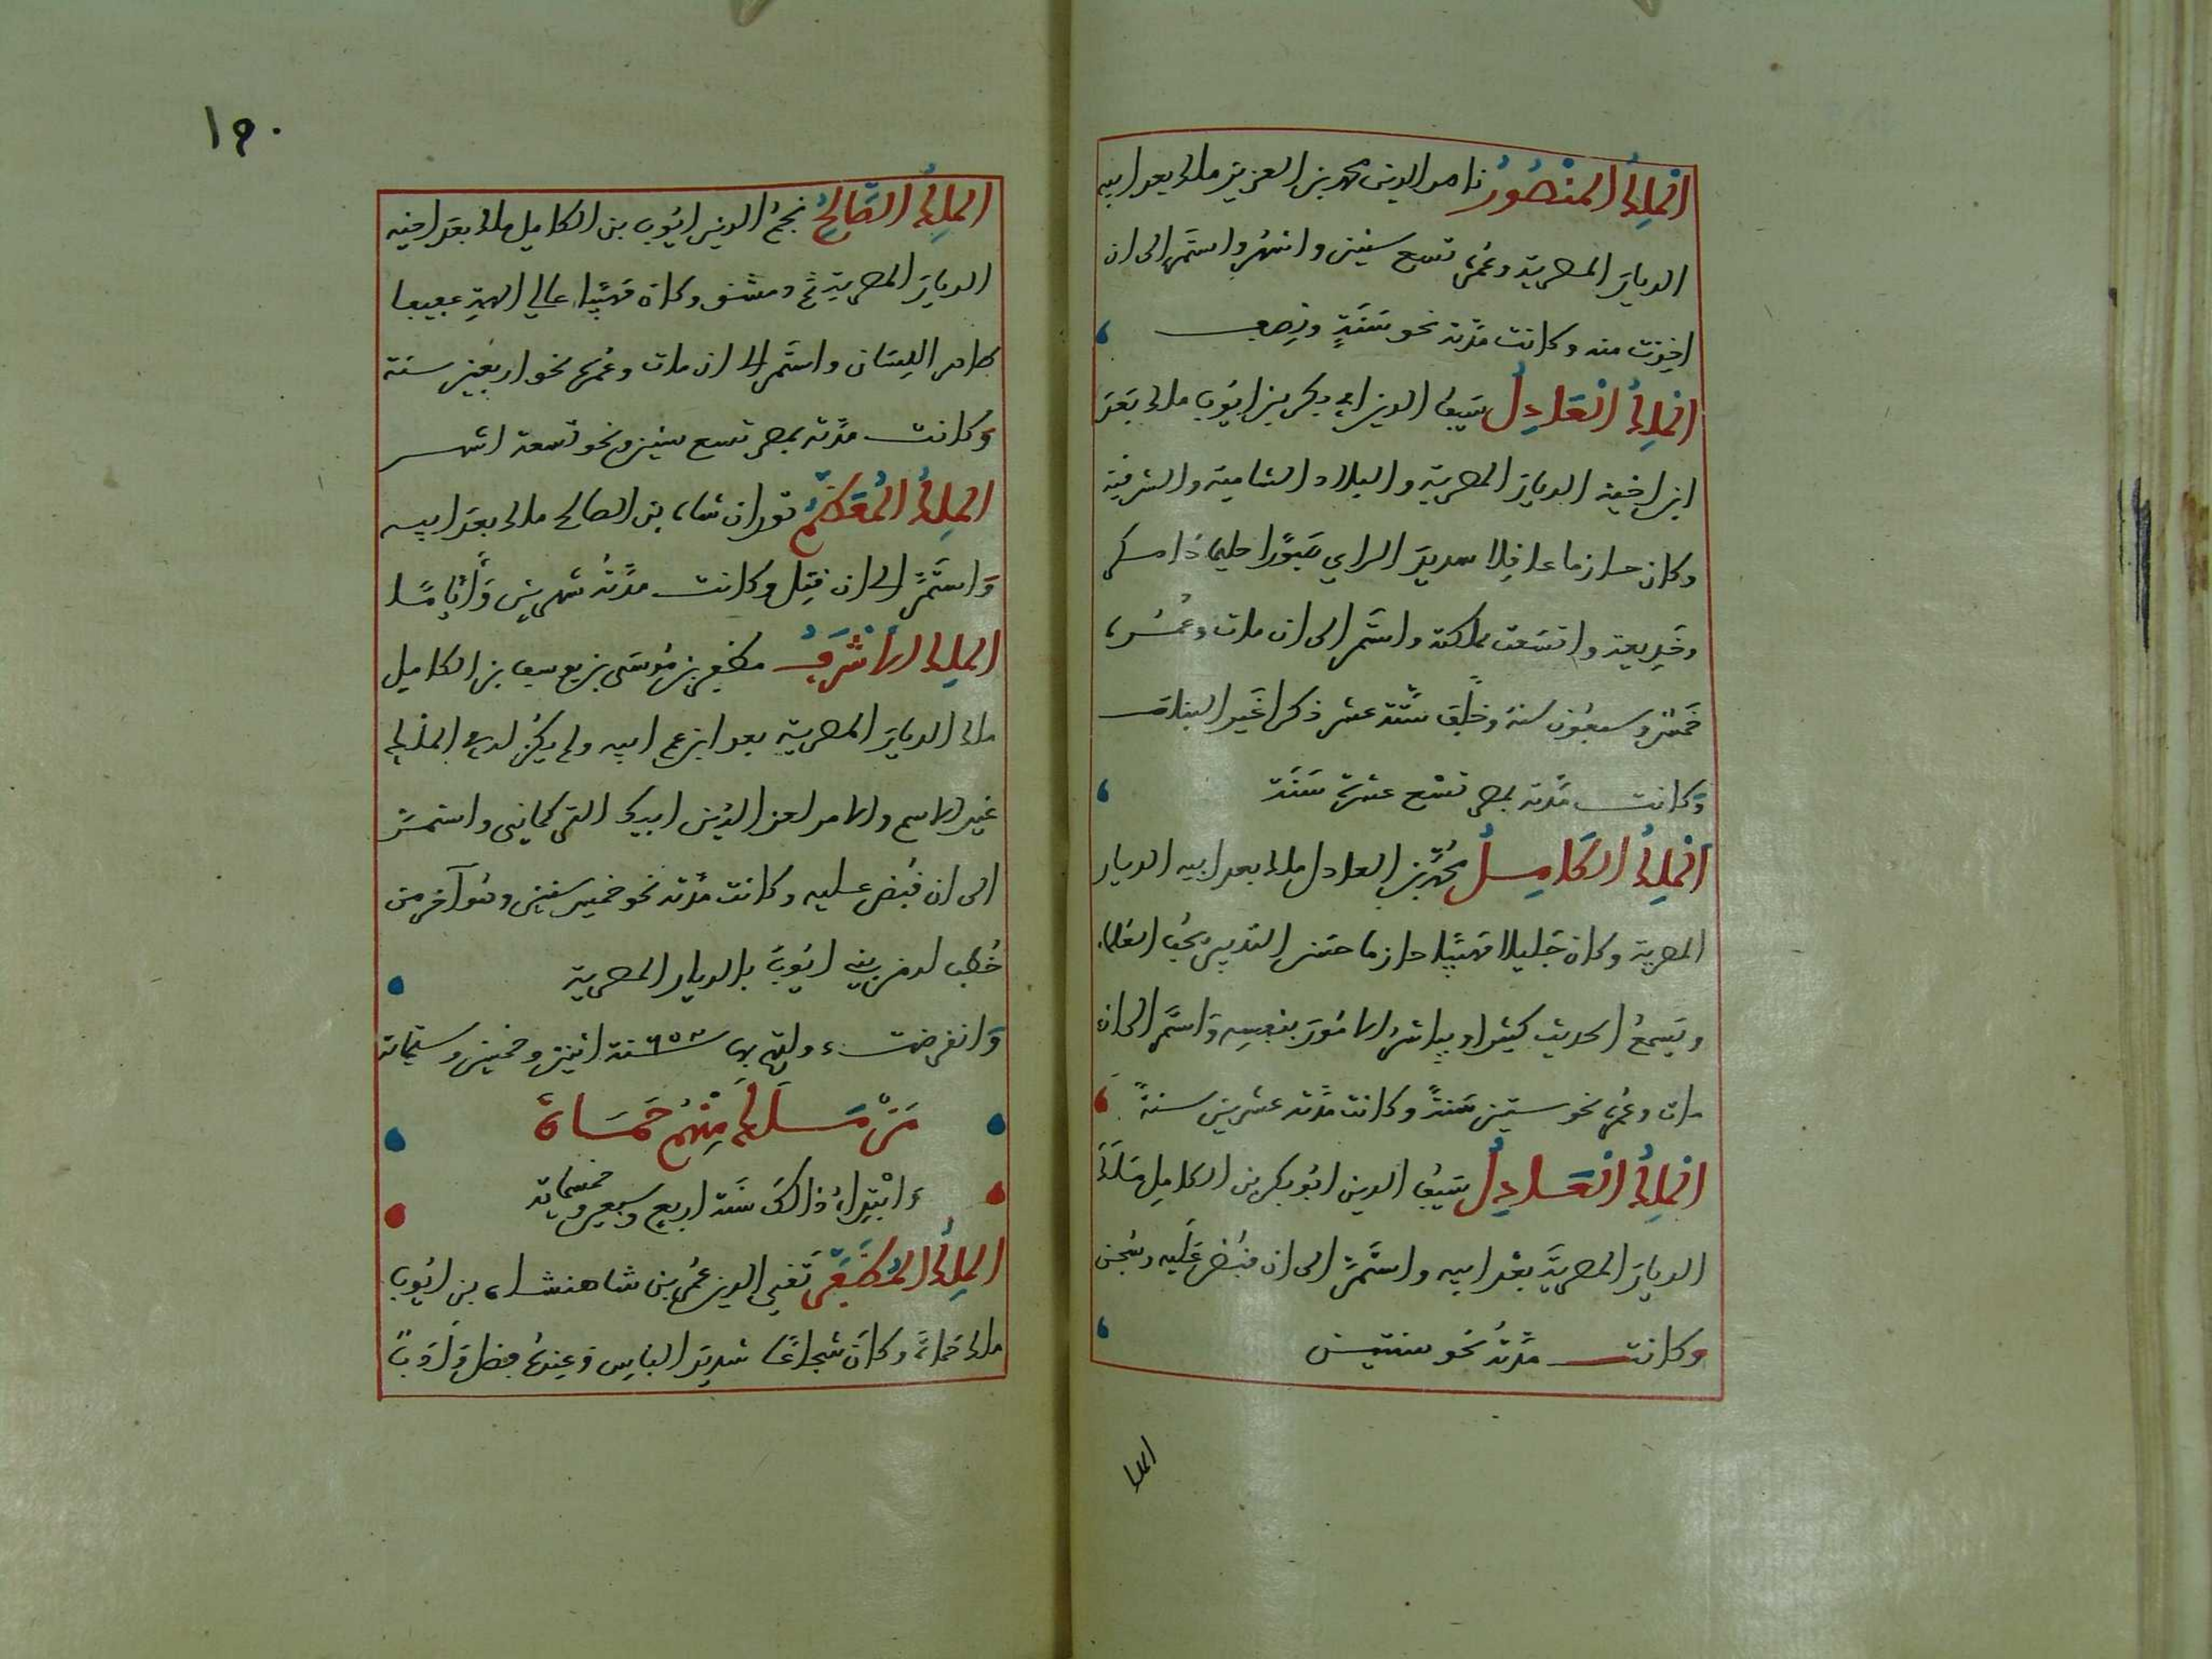 الملك المنصور ناصر الدين محمد بن العزيز ملك بعد ابيه
الديار المصرية وعمره تسع سنين واشهر واستمر الى ان
اخذت منه وكانت مدته نحو سنة ونصف
الملك العادل سيف الدين ابي بكر بن ايوب ملك بعد
ابن اخيه الديار المصرية والبلاد الشامية والشرقية
وكان حازما عاقلا سديد الراي صبورا حليما ذا مكر
وخديعة واتسعت مملكته واستمر الى ان مات وعمره
خمس وسبعون سنة وخلف ستة عشر ذكرا غير البنات
وكانت مدته بمصر تسع عشرة سنة
الملك الكامل محمد بن العادل ملك بعد ابيه الديار
المصرية وكان جليلا مهيبا حازما حسن التدبير يحب العلماء
ويسمع الحديث كثيرا ويباشر الامور بنفسه واستمر الى ان
مات وعمره نحو ستين سنة وكانت مدته عشرين سنة
الملك العادل سيف الدين ابو بكر بن الكامل ملك
الديار المصرية بعد ابيه واستمر الى ان قبض عليه وسجن
وكانت مدته نحو سنتين
الملك
١٢٠
الملك الصالح نجم الدين ايوب بن الكامل ملك بعد اخيه
الديار المصرية ثم دمشق وكان مهيبا عالي الهمة عفيفا
طاهر اللسان واستمر الى ان مات وعمره نحو اربعين سنة
وكانت مدته بمصر تسع سنين ونحو تسعة اشهر
الملك المعظم توران شاه بن الصالح ملك بعد ابيه
واستمر الى ان قتل وكانت مدته شهرين واياما
الملك الاشرف مظفر بن موسى بن يوسف بن الكامل
ملك الديار المصرية بعد ابن عم ابيه ولم يكن له في الملك
غير الاسم والامر لعز الدين ايبك التركماني واستمر
الى ان قبض عليه وكانت مدته نحو خمس سنين وهو آخر من
خطب له من بني ايوب بالديار المصرية
وانقرضت دولتهم بها ٦٥٢ سنة اثنين وخمسين وستمائة
من مسلك منهم حماة
وابتداء ذالك سنة اربع وسبعين وخمسمائة
الملك المظفر تقي الدين عمر بن شاهنشاه بن ايوب
ملك حماة وكان شجاعا شديد الباس وعنده فضل وادب